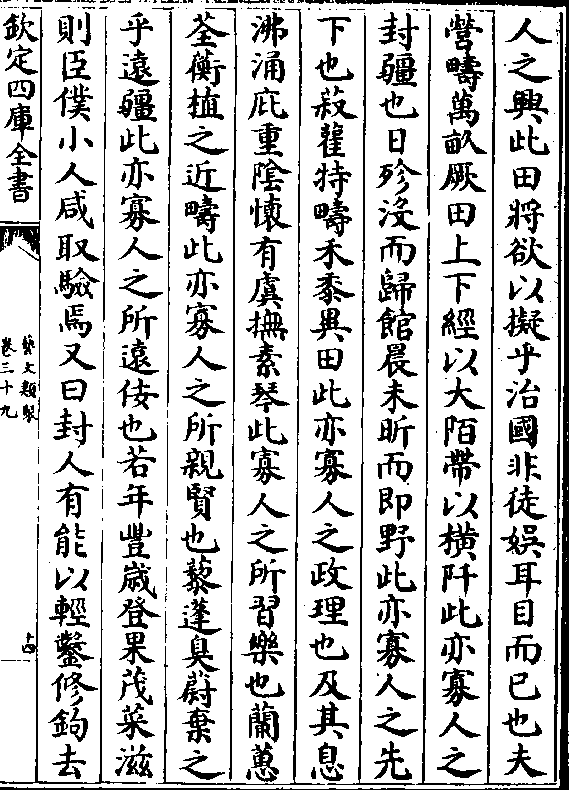 人之興此田將欲以擬乎治國非徒娛耳目而已也夫
營疇萬畝厥田上下經以大陌帶以横阡此亦寡人之
封疆也日殄没而歸館晨未昕而即野此亦寡人之先
下也菽藿特疇禾黍異田此亦寡人之政理也及其息
沸涌庇重隂懷有虞撫素琴此寡人之所習樂也蘭蕙
荃蘅植之近疇此亦寡人之所親賢也藜蓬臭蔚棄之
乎逺疆此亦寡人之所逺佞也若年豐嵗登果茂菜滋
則臣僕小人咸取驗焉又曰封人有能以輕鑿修鉤去
欽定四庫全書
藝文類聚
卷三十九
十四